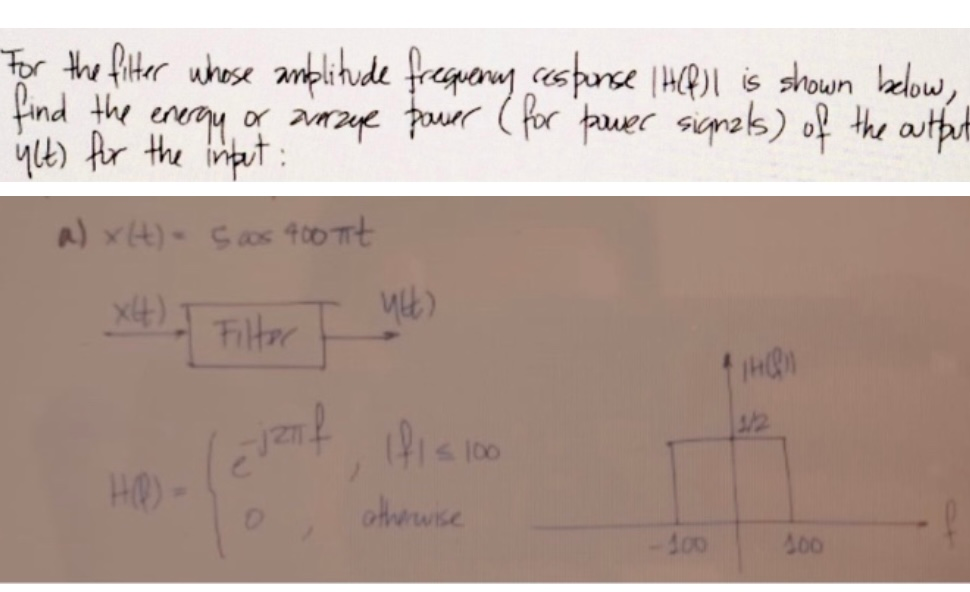 For the filter whose amplitude frequency response |H(f)| is shown below,
find the energy or average power (for power signals) of the output
y(t) for the input:
a) x(t) = 5 cos 400πt
x(t)
Filter
y(t)
H(f) = { e^{-j2πf} , |f| ≤ 100
0 , otherwise
|H(f)|
1/2
-100
100
f